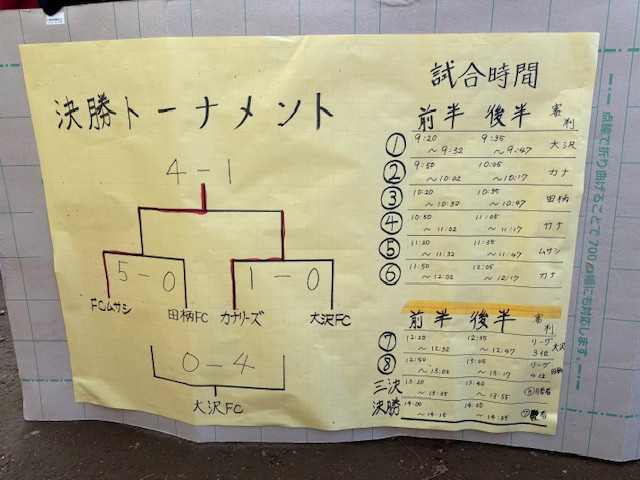 決勝トーナメント
4-1
5-0
1-0
FCムサシ
田柄FC
カナリーズ
大沢FC
0-4
大沢FC
試合時間
前半 後半 審判
① 9:20 ~9:32 9:35 ~9:47 大沢
② 9:50 ~10:02 10:05 ~10:17 カナ
③ 10:20 ~10:32 10:35 ~10:47 田柄
④ 10:50 ~11:02 11:05 ~11:17 カナ
⑤ 11:20 ~11:32 11:35 ~11:47 ムサシ
⑥ 11:50 ~12:02 12:05 ~12:17 カナ
前半 後半 審判
⑦ 12:20 ~12:32 12:35 ~12:47 リーグ3位 大沢
⑧ 12:50 ~13:02 13:05 ~13:17 リーグ4位 田柄
三決 13:20 ~13:35 13:40 ~13:55
決勝 14:00 ~14:15 14:20 ~14:35
点線で折り曲げることで700
幅にも対応します。